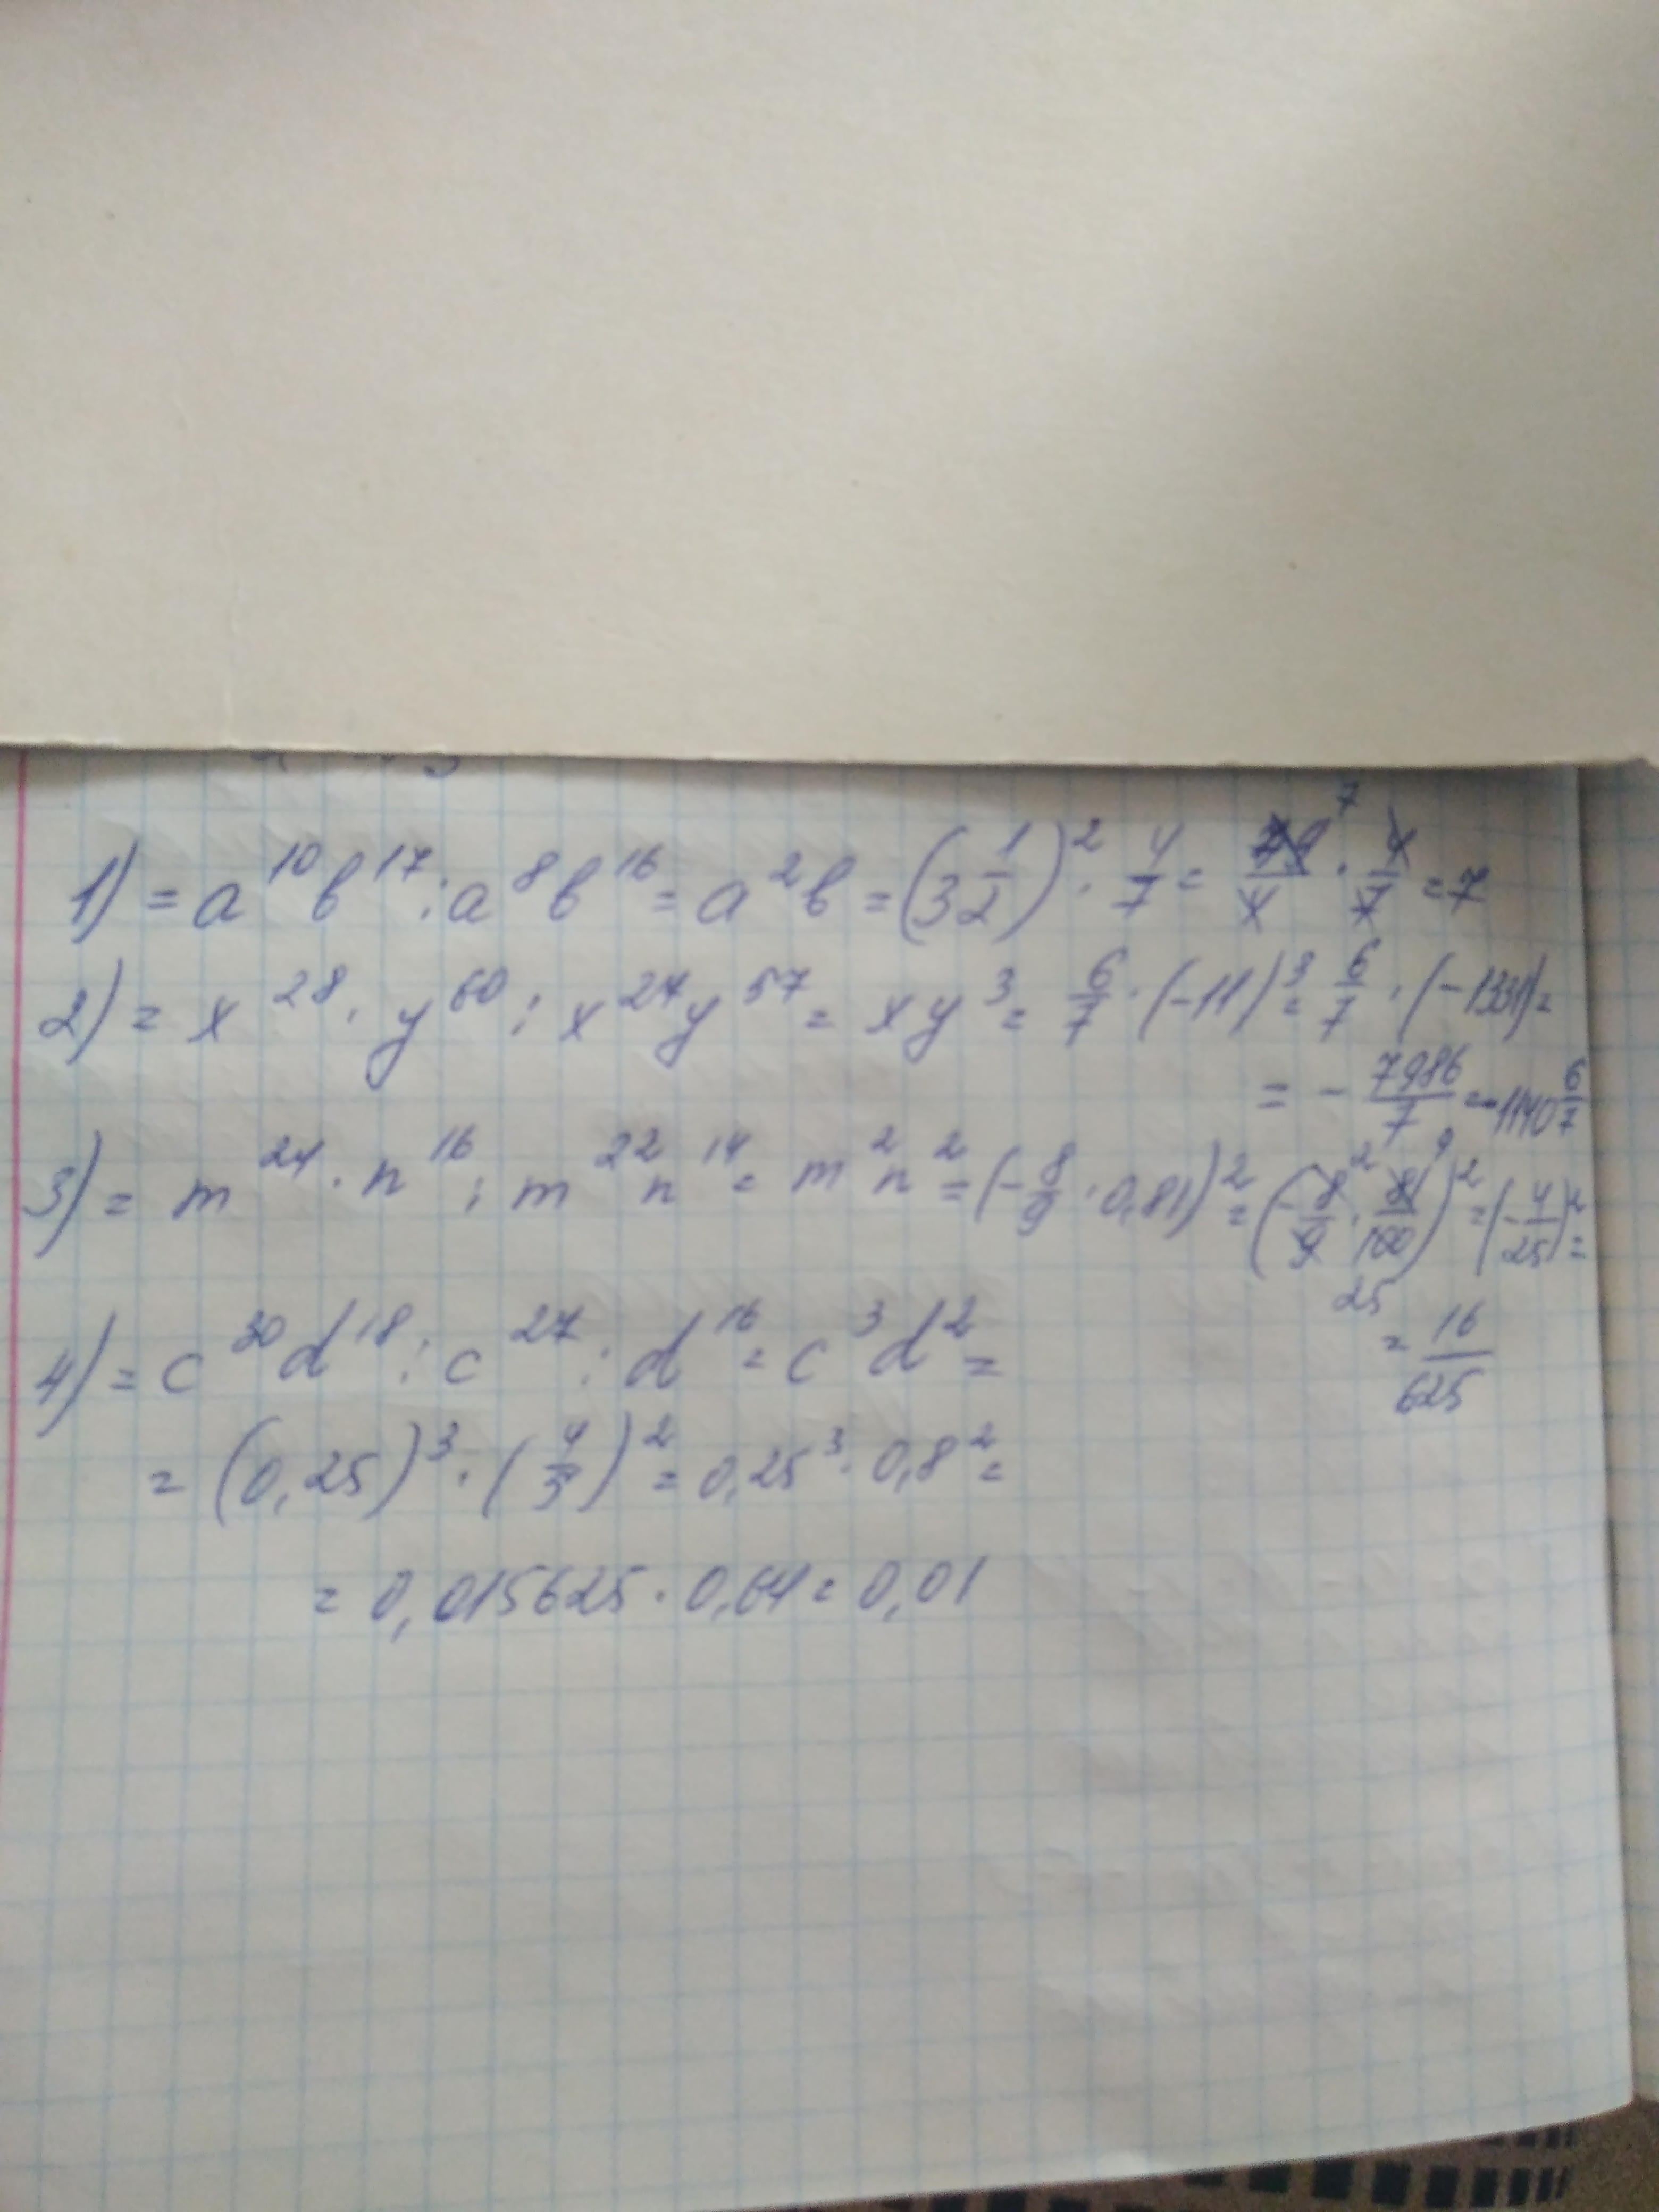 1) = a¹⁰b¹⁷ : a⁸b¹⁶ = a²b = (3 1/2)² · 4/7 = 49/4 · 4/7 = 7
2) = x²⁸ · y⁶⁰ : x²⁷y⁵⁷ = xy³ = 6/7 · (-11)³ = 6/7 · (-1331) =
= - 7986/7 = -1140 6/7
3) = m²⁴ · n¹⁶ : m²²n¹⁴ = m²n² = (-8/9 · 0,81)² = (-8/9 · 81/100)² = (-4/25)² =
= 16/625
4) = c³⁰d¹⁸ : c²⁷ : d¹⁶ = c³d² =
= (0,25)³ · (4/5)² = 0,25³ · 0,8² =
= 0,015625 · 0,64 = 0,01